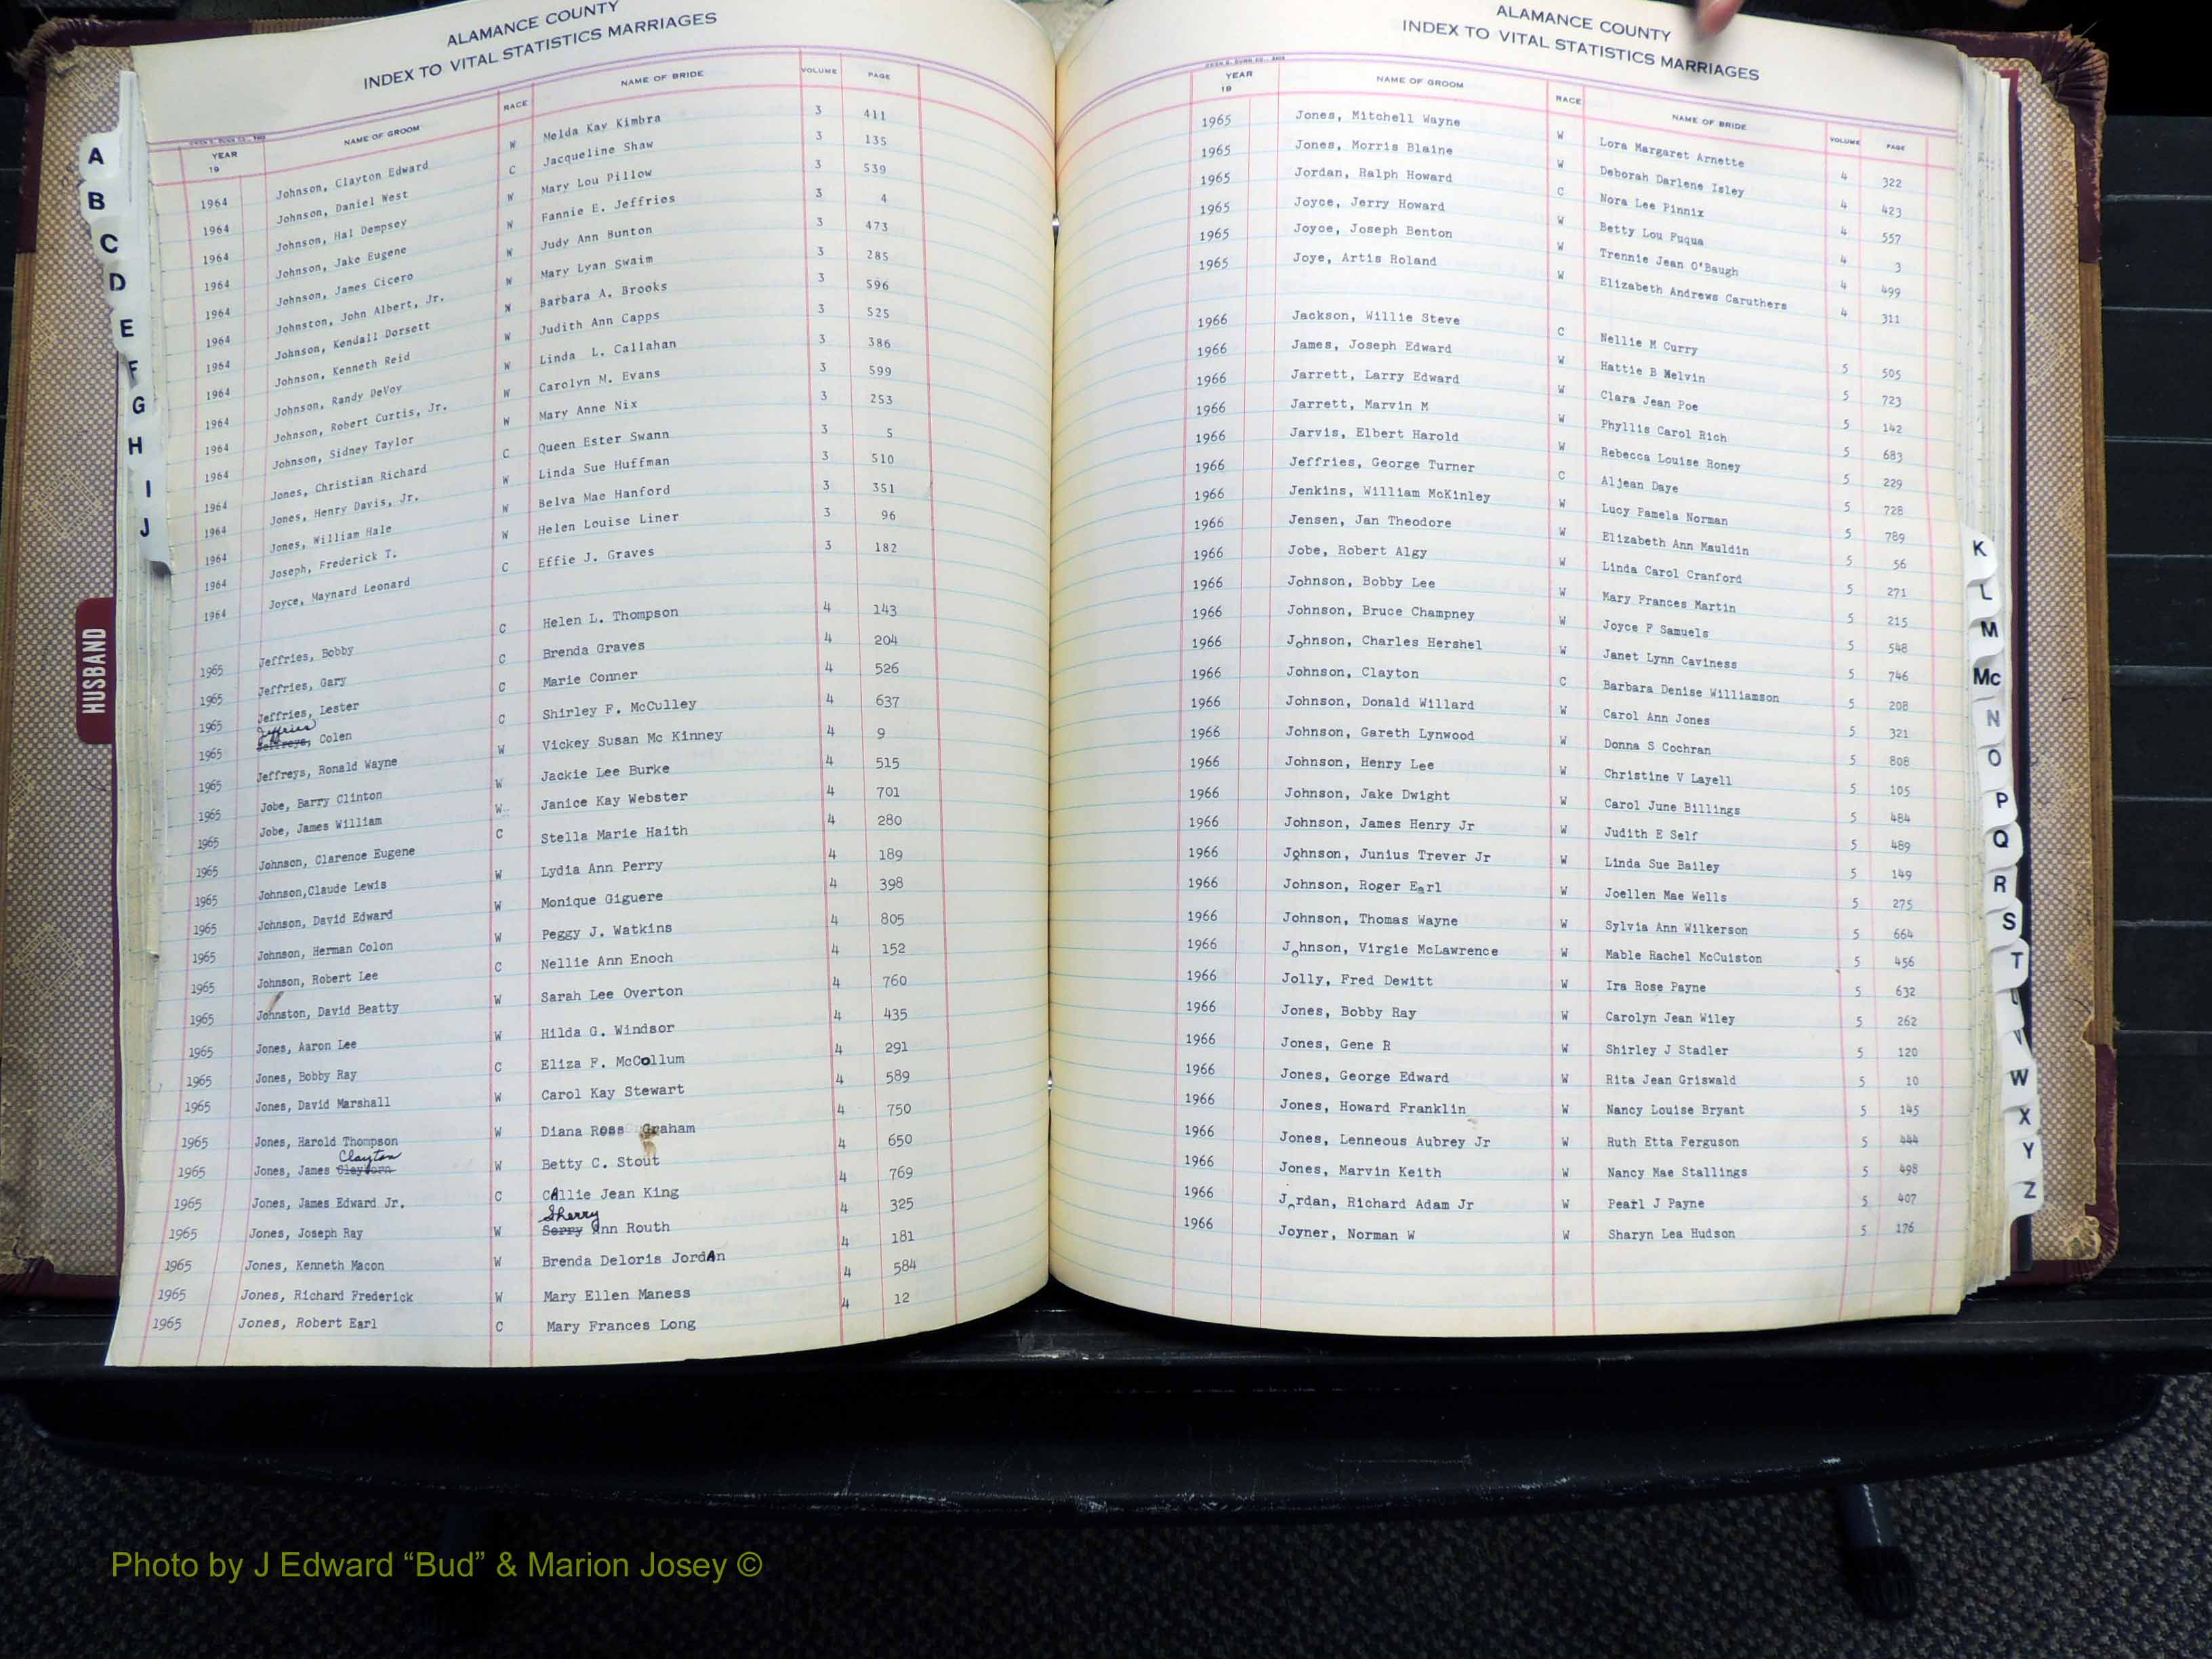 ALAMANCE COUNTY
INDEX TO VITAL STATISTICS MARRIAGES
YEAR 19 NAME OF GROOM RACE NAME OF BRIDE VOLUME PAGE
1964 Johnson, Clayton Edward W Melda Kay Kimbra 3 411
1964 Johnson, Daniel West C Jacqueline Shaw 3 135
1964 Johnson, Hal Dempsey W Mary Lou Pillow 3 539
1964 Johnson, Jake Eugene W Fannie E. Jeffries 3 4
1964 Johnson, James Cicero W Judy Ann Bunton 3 473
1964 Johnston, John Albert, Jr. W Mary Lyan Swaim 3 285
1964 Johnson, Kendall Dorsett W Barbara A. Brooks 3 596
1964 Johnson, Kenneth Reid W Judith Ann Capps 3 525
1964 Johnson, Randy DeVoy W Linda L. Callahan 3 386
1964 Johnson, Robert Curtis, Jr. W Carolyn M. Evans 3 599
1964 Johnson, Sidney Taylor W Mary Anne Nix 3 253
1964 Jones, Christian Richard C Queen Ester Swann 3 5
1964 Jones, Henry Davis, Jr. W Linda Sue Huffman 3 510
1964 Jones, William Hale W Belva Mae Hanford 3 351
1964 Joseph, Frederick T. W Helen Louise Liner 3 96
1964 Joyce, Maynard Leonard C Effie J. Graves 3 182
1965 Jeffries, Bobby C Helen L. Thompson 4 143
1965 Jeffries, Gary C Brenda Graves 4 204
1965 Jeffries, Lester C Marie Conner 4 526
Jeffries
1965 Jeffreys, Colen C Shirley F. McCulley 4 637
1965 Jeffreys, Ronald Wayne W Vickey Susan Mc Kinney 4 9
1965 Jobe, Barry Clinton W Jackie Lee Burke 4 515
1965 Jobe, James William W Janice Kay Webster 4 701
1965 Johnson, Clarence Eugene C Stella Marie Haith 4 280
1965 Johnson,Claude Lewis W Lydia Ann Perry 4 189
1965 Johnson, David Edward W Monique Giguere 4 398
1965 Johnson, Herman Colon W Peggy J. Watkins 4 805
1965 Johnson, Robert Lee C Nellie Ann Enoch 4 152
1965 Johnston, David Beatty W Sarah Lee Overton 4 760
1965 Jones, Aaron Lee W Hilda G. Windsor 4 435
1965 Jones, Bobby Ray C Eliza F. McCollum 4 291
1965 Jones, David Marshall W Carol Kay Stewart 4 589
1965 Jones, Harold Thompson W Diana Ross Graham 4 750
Clayton
1965 Jones, James Clayborn W Betty C. Stout 4 650
1965 Jones, James Edward Jr. C CAllie Jean King 4 769
Sherry
1965 Jones, Joseph Ray W Serry Ann Routh 4 325
1965 Jones, Kenneth Macon W Brenda Deloris JordAn 4 181
1965 Jones, Richard Frederick W Mary Ellen Maness 4 584
1965 Jones, Robert Earl C Mary Frances Long 4 12
ALAMANCE COUNTY
INDEX TO VITAL STATISTICS MARRIAGES
YEAR 19 NAME OF GROOM RACE NAME OF BRIDE VOLUME PAGE
1965 Jones, Mitchell Wayne W Lora Margaret Arnette 4 322
1965 Jones, Morris Blaine W Deborah Darlene Isley 4 423
1965 Jordan, Ralph Howard C Nora Lee Pinnix 4 557
1965 Joyce, Jerry Howard W Betty Lou Fuqua 4 3
1965 Joyce, Joseph Benton W Trennie Jean O'Baugh 4 499
1965 Joye, Artis Roland W Elizabeth Andrews Caruthers 4 311
1966 Jackson, Willie Steve C Nellie M Curry 5 505
1966 James, Joseph Edward W Hattie B Melvin 5 723
1966 Jarrett, Larry Edward W Clara Jean Poe 5 142
1966 Jarrett, Marvin M W Phyllis Carol Rich 5 683
1966 Jarvis, Elbert Harold W Rebecca Louise Roney 5 229
1966 Jeffries, George Turner C Aljean Daye 5 728
1966 Jenkins, William McKinley W Lucy Pamela Norman 5 789
1966 Jensen, Jan Theodore W Elizabeth Ann Mauldin 5 56
1966 Jobe, Robert Algy W Linda Carol Cranford 5 271
1966 Johnson, Bobby Lee W Mary Frances Martin 5 215
1966 Johnson, Bruce Champney W Joyce F Samuels 5 548
1966 Johnson, Charles Hershel W Janet Lynn Caviness 5 746
1966 Johnson, Clayton C Barbara Denise Williamson 5 208
1966 Johnson, Donald Willard W Carol Ann Jones 5 321
1966 Johnson, Gareth Lynwood W Donna S Cochran 5 808
1966 Johnson, Henry Lee W Christine V Layell 5 105
1966 Johnson, Jake Dwight W Carol June Billings 5 484
1966 Johnson, James Henry Jr W Judith E Self 5 489
1966 Johnson, Junius Trever Jr W Linda Sue Bailey 5 149
1966 Johnson, Roger Earl W Joellen Mae Wells 5 275
1966 Johnson, Thomas Wayne W Sylvia Ann Wilkerson 5 664
1966 Johnson, Virgie McLawrence W Mable Rachel McCuiston 5 456
1966 Jolly, Fred Dewitt W Ira Rose Payne 5 632
1966 Jones, Bobby Ray W Carolyn Jean Wiley 5 262
1966 Jones, Gene R W Shirley J Stadler 5 120
1966 Jones, George Edward W Rita Jean Griswald 5 10
1966 Jones, Howard Franklin W Nancy Louise Bryant 5 145
1966 Jones, Lenneous Aubrey Jr W Ruth Etta Ferguson 5 444
1966 Jones, Marvin Keith W Nancy Mae Stallings 5 498
1966 Jordan, Richard Adam Jr W Pearl J Payne 5 407
1966 Joyner, Norman W W Sharyn Lea Hudson 5 176
A
B
C
D
E
F
G
H
I
J
HUSBAND
K
L
M
Mc
N
O
P
Q
R
S
T
U
V
W
X
Y
Z
Photo by J Edward “Bud” & Marion Josey ©